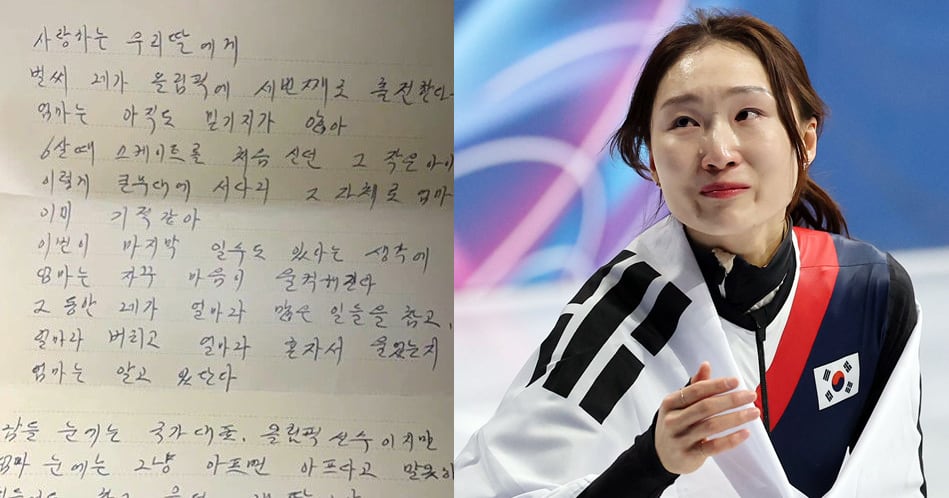 사랑하는 우리딸에게
벌써 네가 올림픽에 세번째로 출전한다
엄마는 아직도 믿기지가 않아
6살때 스케이트를 처음 신던 그 작은아이
이렇게 큰무대에 서다니 그 자체로 엄마
이미 기적같아
이번이 마지막 일수도 있다는 생각에
엄마는 자꾸 마음이 울컥해진다
그 동안 네가 얼마나 많은 일들을 참고,
얼마나 버티고 얼마나 혼자서 울었는지
엄마는 알고 있단다
남들 눈에는 국가대표, 올림픽 선수이지만
엄마 눈에는 그냥 아프면 아프다고 말못